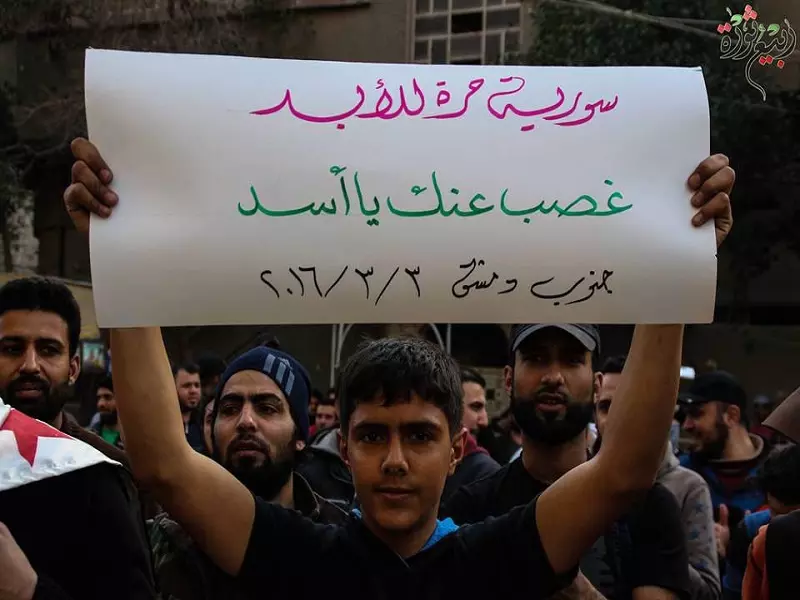 ربيع ثورة
سورية حرة للأبد
غصب عنك يا أسد
جنوب دمشق ٢٠١٦/٣/٣